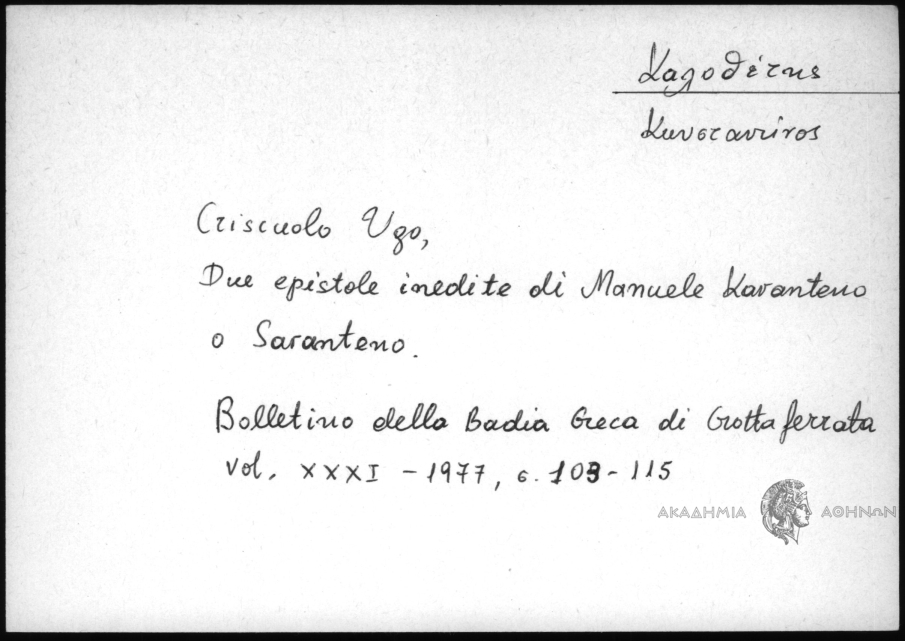 Καλοθέτης
Κωνσταντίνος
Criscuolo Ugo,
Due epistole inedite di Manuele Karanteno
o Saranteno.
Bolletino della Badia Greca di Grottaferrata
vol. XXXI - 1977, σ. 103-115
ΑΚΑΔΗΜΙΑ ΑΘΗΝΩΝ